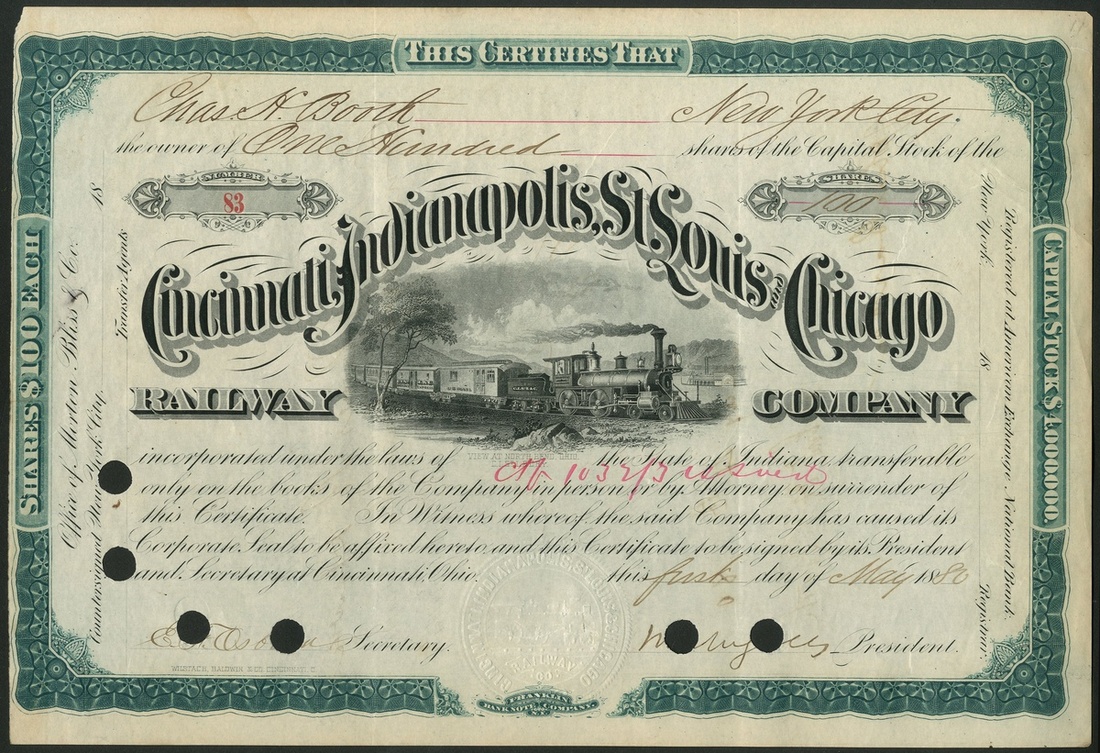 THIS CERTIFIES THAT
Chas H. Booth New York City.
the owner of One Hundred shares of the Capital Stock of the
NUMBER
83
SHARES
100
Cincinnati, Indianapolis, St. Louis and Chicago
RAILWAY COMPANY
VIEW AT NORTH BEND, OHIO.
incorporated under the laws of the State of Indiana, transferable
Ctf 1032/3 issued
only on the books of the Company in person or by Attorney on surrender of
this Certificate. In Witness whereof the said Company has caused its
Corporate Seal to be affixed hereto, and this Certificate to be signed by its President
and Secretary at Cincinnati, Ohio. this first day of May 1880
Secretary. President.
RAILWAY
CO
FRANKLIN
BANK NOTE COMPANY
N.Y.
SHARES $100 EACH
Countersigned New York City, 18
Office of Morton Bliss & Co. Transfer Agents
CAPITAL STOCK $4,000,000.
Registered at American Exchange National Bank
New York 18 Registrar